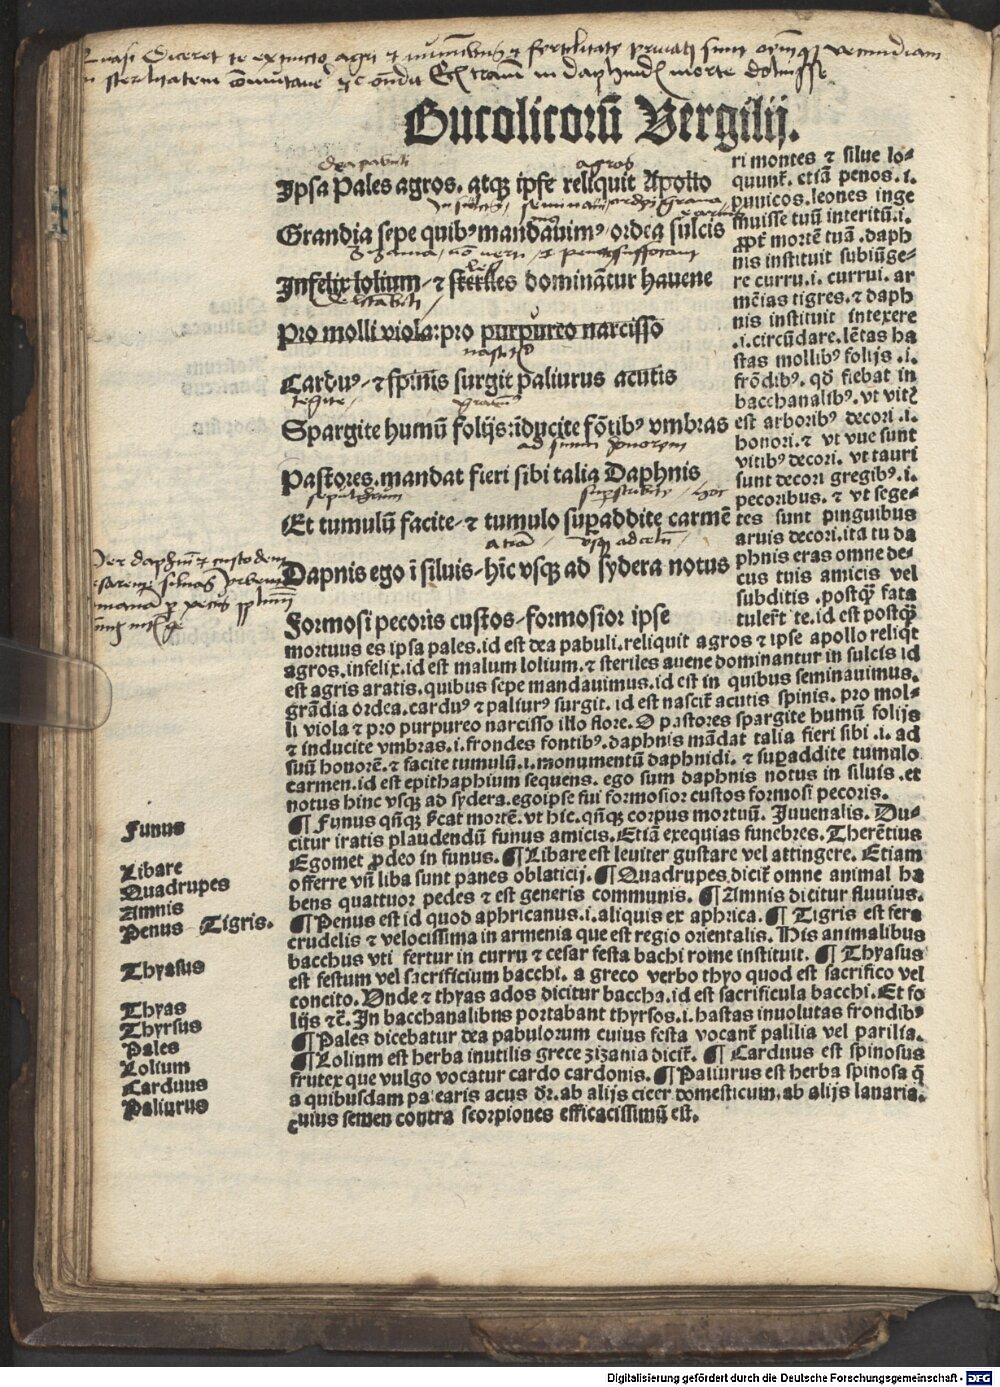 Bucolicorū Vergilij.
Ipsa Pales agros. atqꝫ ipse reliquit Apollo
Grandia sepe quibꝰ mandauimꝰ ordea sulcis
Infelix lolium ⁊ steriles dominātur hauene
Pro molli viola: pro purpureo narcisso
Carduꝰ ⁊ spinis surgit paliurus acutis
Spargite humū folijs: īducite fōtibꝰ vmbras
Pastores. mandat fieri sibi talia Daphnis
Et tumulū facite ⁊ tumulo suꝑaddite carmē
Dapnis ego ī siluis hīc vsqꝫ ad sydera notus
Formosi pecoris custos formosior ipse
ri montes ⁊ silue lo⸗
quunt᷑. etiā penos .i.
punicos. leones inge
muisse tuū interitū .i.
ꝓpt᷑ mortē tuā. daph
nis instituit subiūge⸗
re curru .i. currui. ar
mēias tigres. ⁊ daph
nis instituit intexere
.i. circūdare. lētas ha
stas mollibꝰ folijs .i.
frōdibꝰ. qđ fiebat in
bacchanalibꝰ. vt vit᷑
est arboribꝰ decori .i.
honori. ⁊ vt vue sunt
vitibꝰ decori. vt tauri
sunt decori gregibꝰ .i.
pecoribus. ⁊ vt sege⸗
tes sunt pinguibus
aruis decori. ita tu da
phnis eras omne de⸗
cus tuis amicis vel
subditis. postqꝫ fata
tuler᷑t te. id est postqꝫ
mortuus es ipsa pales. id est dea pabuli. reliquit agros ⁊ ipse apollo reliqt
agros. infelix. id est malum lolium. ⁊ steriles auene dominantur in sulcis id
est agris aratis. quibus sepe mandauimus. id est in quibus seminauimus.
grādia ordea. carduꝰ ⁊ paliurꝰ surgit. id est nascit᷑ acutis spinis. pro mol⸗
li viola ⁊ pro purpureo narcisso illo flore. O pastores spargite humū folijs
⁊ inducite vmbras .i. frondes fontibꝰ. daphnis mādat talia fieri sibi .i. ad
suū honorē. ⁊ facite tumulū .i. monumentū daphnidi. ⁊ suꝑaddite tumulo
carmen. id est epithaphium sequens. ego sum daphnis notus in siluis. et
notus hinc vsqꝫ ad sydera. egoipse fui formosior custos formosi pecoris.
Funus
¶ Funus qñqꝫ ſcat mortē. vt hic. qñqꝫ corpus mortuū. Juuenalis. Du⸗
citur iratis plaudendū funus amicis. Etiā exequias funebres. Therētius
Libare
Egomet ꝓdeo in funus. ¶ Libare est leuiter gustare vel attingere. Etiam
Quadrupes
offerre vn̄ liba sunt panes oblaticij. ¶ Quadrupes dicit᷑ omne animal ha
Amnis
bens quattuor pedes ⁊ est generis communis. ¶ Amnis dicitur fluuius.
Penus Tigris.
¶ Penus est id quod aphricanus .i. aliquis ex aphrica. ¶ Tigris est fera
crudelis ⁊ velocissima in armenia que est regio orientalis. His animalibus
Thyasus
bacchus vti fertur in curru ⁊ cesar festa bachi rome instituit. ¶ Thyasus
est festum vel sacrificium bacchi. a greco verbo thyo quod est sacrifico vel
Thyas
concito. Vnde ⁊ thyas ados dicitur baccha. id est sacrificula bacchi. Et fo
Thyrsus
lijs ⁊c̄. In bacchanalibus portabant thyrsos .i. hastas inuolutas frondibꝰ
Pales
¶ Pales dicebatur dea pabulorum cuius festa vocant᷑ palilia vel parilia.
Lolium
¶ Lolium est herba inutilis grece zizania dicit᷑. ¶ Carduus est spinosus
Carduus
frutex que vulgo vocatur cardo cardonis. ¶ Paliurus est herba spinosa q̄
Paliurus
a quibusdam pacearis acus dr̄. ab alijs cicer domesticum. ab alijs lanaria.
cuius semen contra scorpiones efficacissimū est.
Digitalisierung gefördert durch die Deutsche Forschungsgemeinschaft - DFG